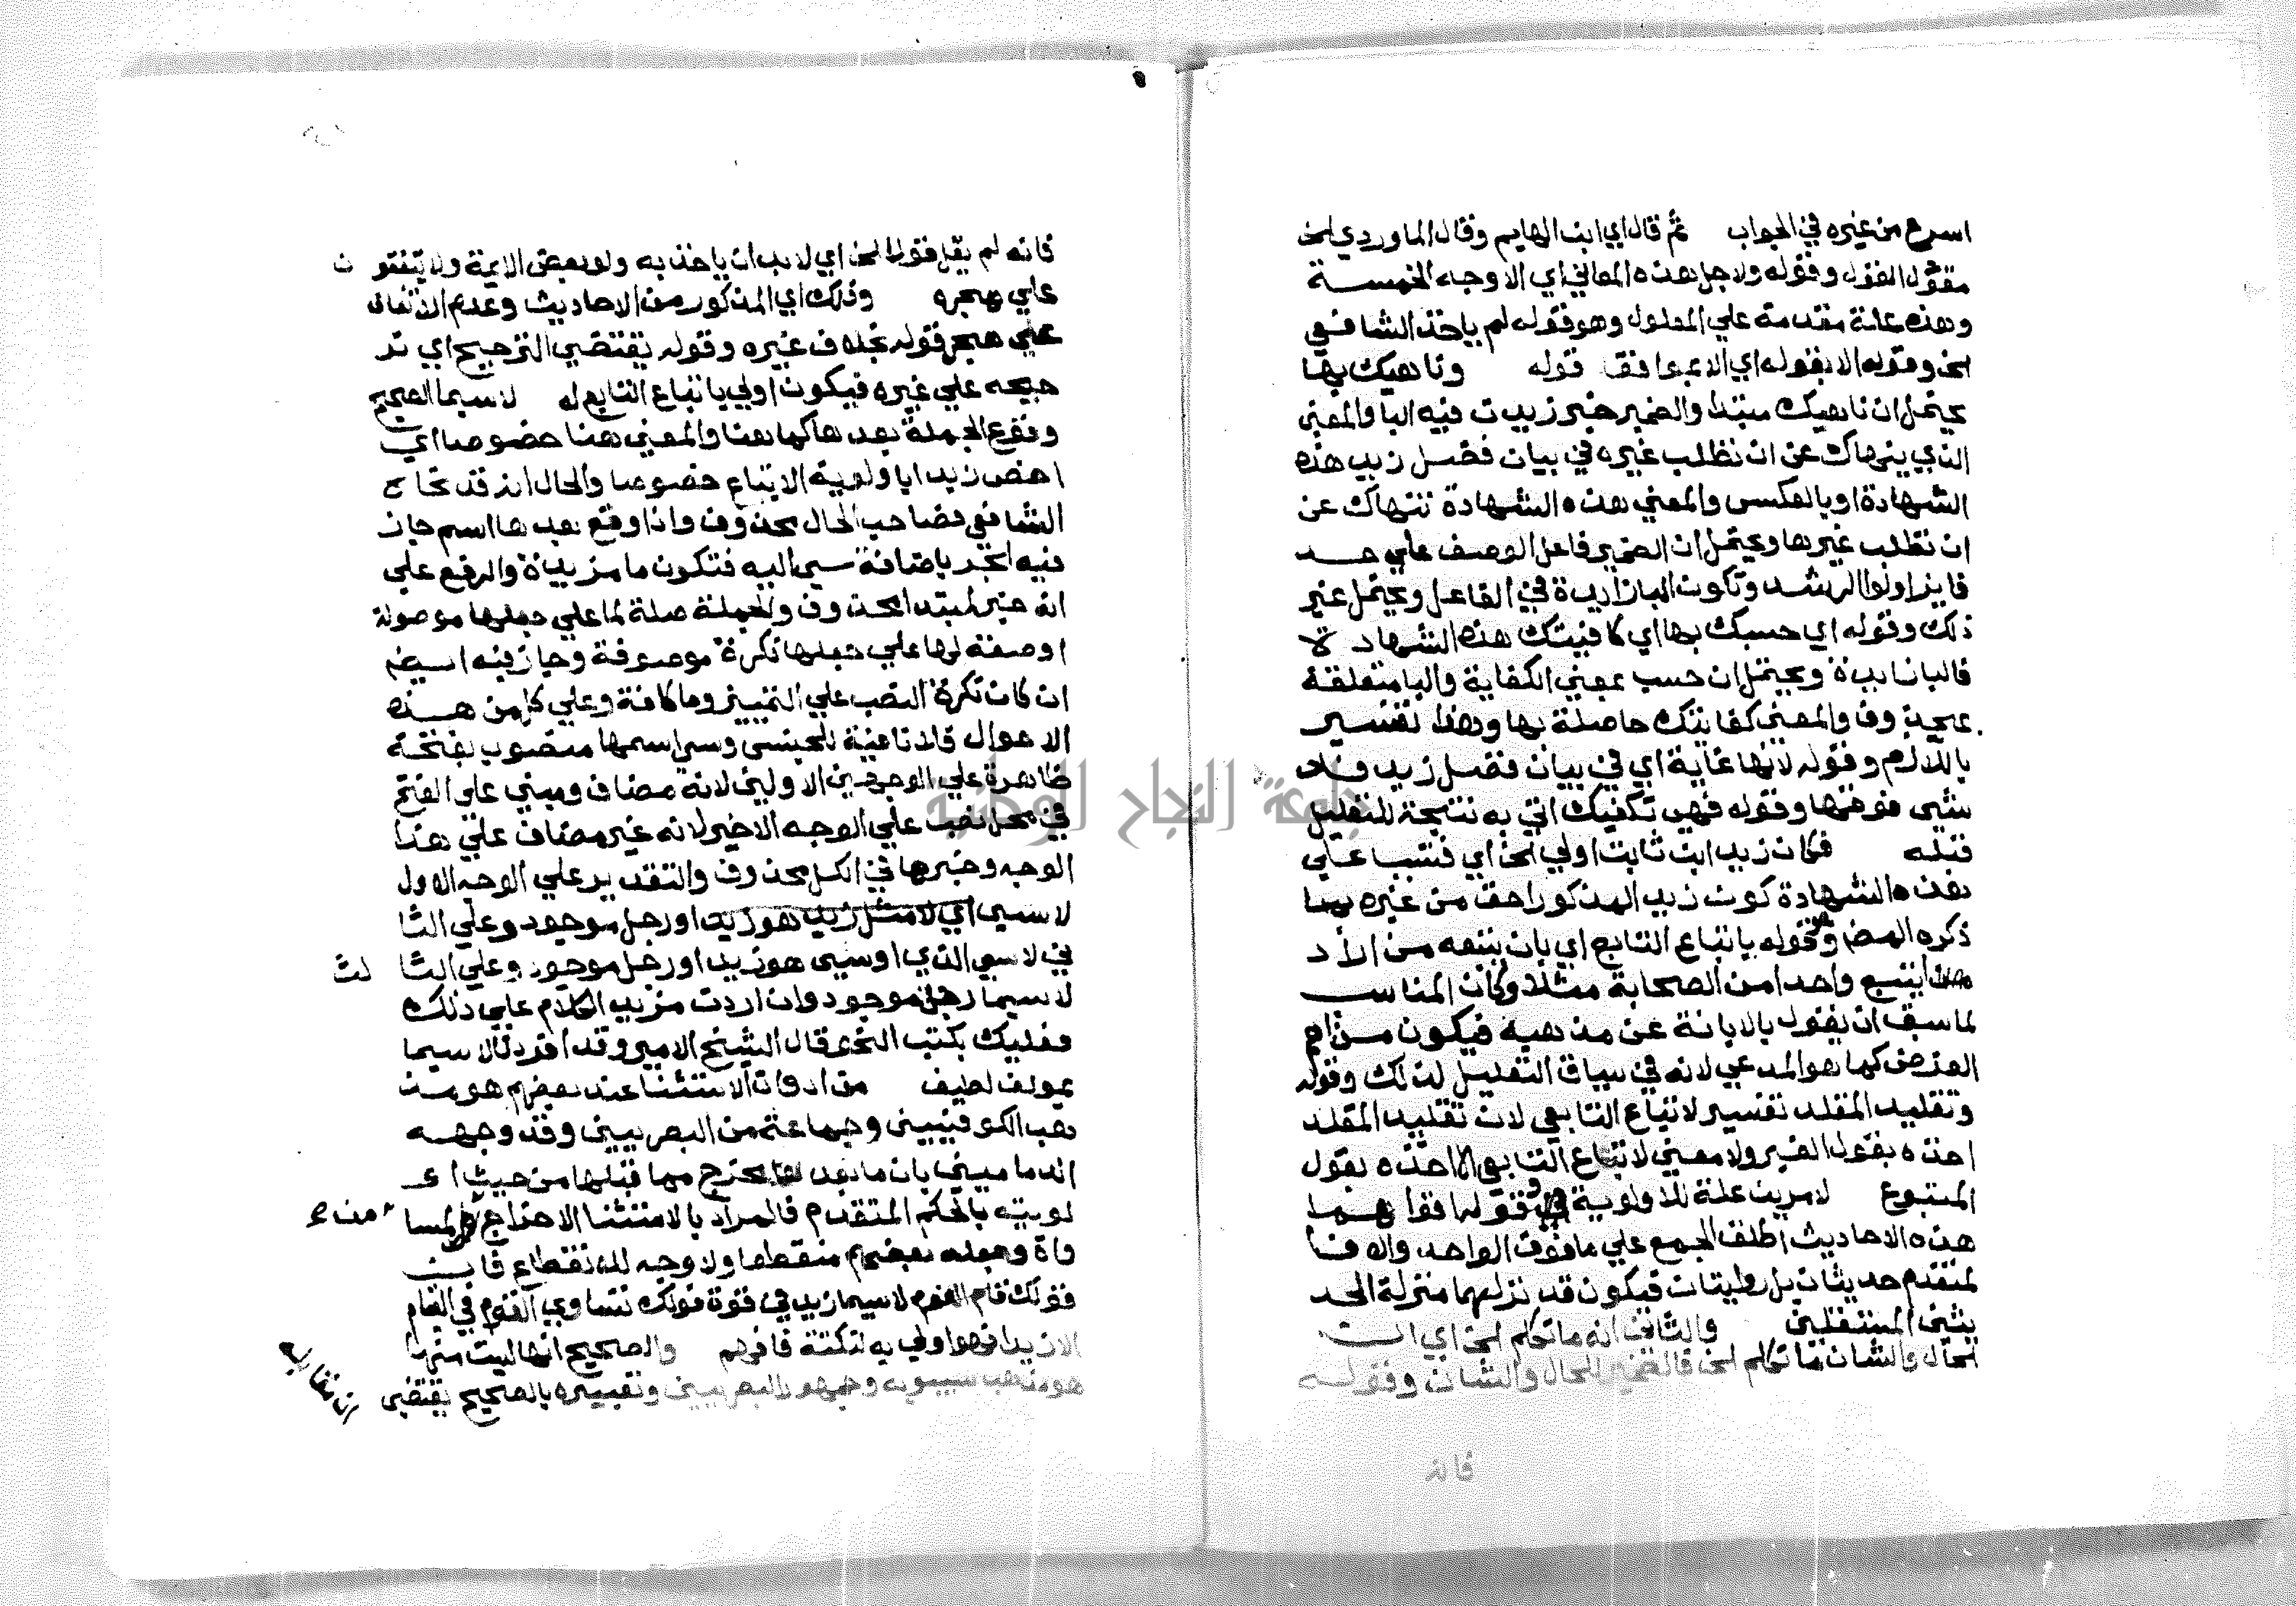 اسرع من غيره في الجواب ثم قال اي ابن الهايم وقال الماوردي الخ
مقول القول وقوله ولاجل هذه المعاني اي الاوجه الخمسة
وهذه علة مقدمة علي المعلول وهو قوله لم ياخذ الشافعي
الخ وقوله الا بقوله اي الا موافقا قوله وناهيك بها
يحتمل ان ناهيك مبتدا والضمير خبر زيدت فيه البا والمعني
الذي ينهاك عن ان تطلب غيره في بيان فضل زيد هذه
الشهادة او بالعكس والمعني هذه الشهادة تنهاك عن
ان تطلب غيرها ويحتمل ان الضمير فاعل الوصف علي حد
فايز اولوا الرشد وتكون البا زايدة في الفاعل ويحتمل غير
ذلك وقوله اي حسبك بها اي كافيتك هذه الشهادة
فالبا زايدة ويحتمل ان حسب بمعني الكفاية والبا متعلقة
بمحذوف والمعني كفايتك حاصلة بها وهذا تفسير
باللازم وقوله لانها غاية اي في بيان فضل زيد فلا
شي فوقها وقوله فهي تكفيك اتي به نتيجة للتعليل
قبله فكان زيد ابن ثابت اولي الخ اي فتسبب علي
هذه الشهادة كون زيد المذكور احق من غيره بما
ذكره المص وقوله باتباع التابع اي بان يتبعه من اراد
ان يتبع واحدا من الصحابة مثلا وكان المناسب
لما سبق ان يقول بالابانة عن مذهبه فيكون من ام
الغرض كما هو المدعي لانه في سياق التعليل لذلك وقوله
وتقليد المقلد تفسير لاتباع التابعي لان تقليد المقلد
اخذه بقول الغير ولا معني لاتباع التابعي الا اخذه بقول
المتبوع لامرين علة للاولوية قوله افواهما
هذه الاحاديث اطلق الجمع علي ما فوق الواحد والا فا
لمتقدم حديثان بل روايتان فيكون قد نزلهما منزلة الحد
يثين المستقلين والثاني انه ما تكلم الخ اي ان
الحال والشان ما تكلم الخ فالضمير للحال والشان وقوله
فانه
فانه لم يقل قولا الخ اي لا بد ان ياخذ به ولو بعض الايمة ولا يتفقون
علي هجره وذلك اي المذكور من الاحاديث وعدم الاتفاق
علي هجر قوله بخلاف غيره وقوله يقتضي الترجيح اي تر
جيحه علي غيره فيكون اولي باتباع التابع له لاسيما الصحيح
وقوع الجملة بعدها كما هنا والمعني هنا خصوصا اي
اخص زيدا باولوية الاتباع خصوصا والحال انه قد نحاه
الشافعي فصاحب الحال محذوف واذا وقع بعدها اسم جاز
فيه الجر باضافة سي اليه فتكون ما مزيدة والرفع علي
انه خبر لمبتدا محذوف والجملة صلة لما علي جعلها موصولة
او صفة لها علي جعلها نكرة موصوفة وجاز فيه ايضا
ان كان نكرة النصب علي التمييز وما كافة وعلي كل من هذه
الاحوال فلا نافية للجنس وسي اسمها منصوب بفتحة
ظاهرة علي الوجهين الاولين لانه مضاف ومبني علي الفتح
في محل نصب علي الوجه الاخير لانه غير مضاف علي هذا
الوجه وخبرها في الكل محذوف والتقدير علي الوجه الاول
لاسي اي لا مثل زيد هو زيد او رجل موجود وعلي الثا
ني لاسي الذي او سي هو زيد او رجل موجود وعلي الثالث
لاسيما رجل موجود وان اردت مزيد الكلام علي ذلك
فعليك بكتب النحو قال الشيخ الامير وقد افردنا لاسيما
بمولف لطيف من ادوات الاستثنا عند بعضهم هو مذ
هب الكوفيين وجماعة من البصريين وقد وجهه
الدماميني بان ما بعدها يخرج مما قبلها من حيث
اولويته بالحكم المتقدم فالمراد بالاستثنا الاخراج من المسا
واة وجعله بعضهم منقطعا ولا وجه للانقطاع فان
قولك قام القوم لاسيما زيد في قوة قولك تساوي القوم في القيام
الا زيدا فهو اولي به لنكتة فافهم والصحيح انها ليست منها
هو مذهب سيبويه وجمهور البصريين وتعبيره بالصحيح يقتضي
ان مقابله
جامعة النجاح الوطنية